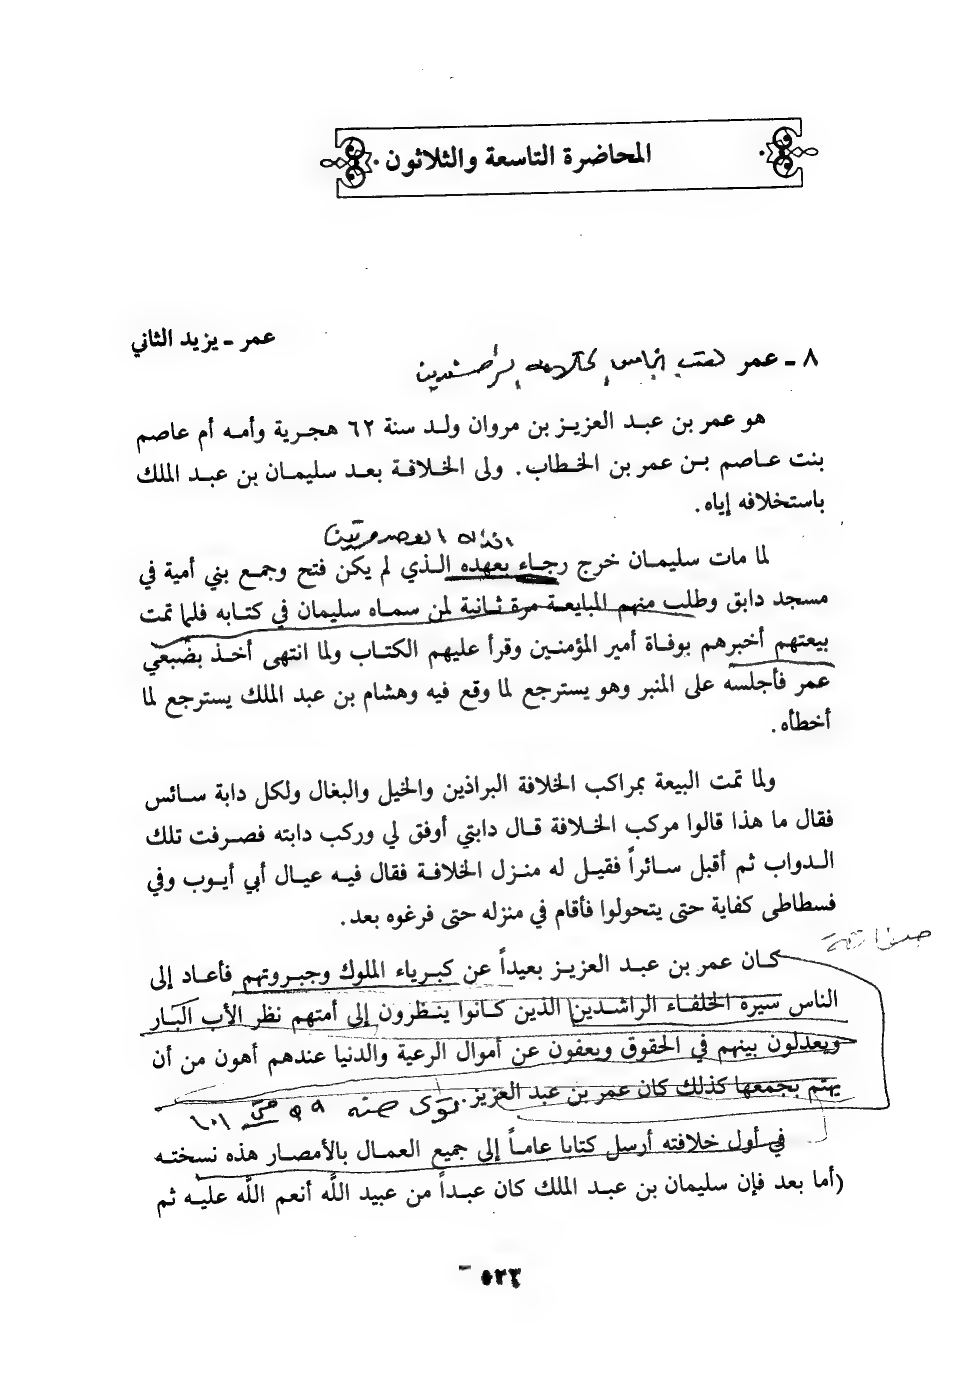 المحاضرة التاسعة والثلاثون
عمر ـ يزيد الثاني
٨ ـ عمر
هو عمر بن عبد العزيز بن مروان ولد سنة ٦٢ هجرية وأمه أم عاصم
بنت عاصم بن عمر بن الخطاب. ولى الخلافة بعد سليمان بن عبد الملك
باستخلافه إياه.
لما مات سليمان خرج رجاء بعهده الذي لم يكن فتح وجمع بني أمية في
مسجد دابق وطلب منهم المبايعة مرة ثانية لمن سماه سليمان في كتابه فلما تمت
بيعتهم أخبرهم بوفاة أمير المؤمنين وقرأ عليهم الكتاب ولما انتهى أخذ بضبعي
عمر فأجلسه على المنبر وهو يسترجع لما وقع فيه وهشام بن عبد الملك يسترجع لما
أخطأه.
ولما تمت البيعة بمراكب الخلافة البراذين والخيل والبغال ولكل دابة سائس
فقال ما هذا قالوا مركب الخلافة قال دابتي أوفق لي وركب دابته فصرفت تلك
الدواب ثم أقبل سائراً فقيل له منزل الخلافة فقال فيه عيال أبي أيوب وفي
فسطاطى كفاية حتى يتحولوا فأقام في منزله حتى فرغوه بعد.
كان عمر بن عبد العزيز بعيداً عن كبرياء الملوك وجبروتهم فأعاد إلى
الناس سيرة الخلفاء الراشدين الذين كانوا ينظرون إلى أمتهم نظر الأب البار
ويعدلون بينهم في الحقوق ويعفون عن أموال الرعية والدنيا عندهم أهون من أن
يهتم بجمعها كذلك كان عمر بن عبد العزيز.
في أول خلافته أرسل كتابا عاماً إلى جميع العمال بالأمصار هذه نسخته
(أما بعد فإن سليمان بن عبد الملك كان عبداً من عبيد اللّه أنعم اللّه عليه ثم
٥٢٣ –